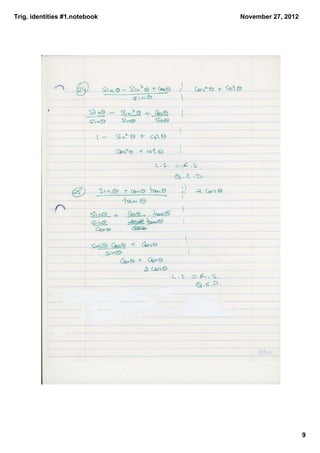 Trig. identities #1.notebook
November 27, 2012
24 Sinθ - Sin³θ + Cosθ | Cos²θ + Cotθ
sinθ
Sinθ - Sin³θ + Cosθ
Sinθ Sinθ Sinθ
1 - Sin²θ + cotθ
Cos²θ + cotθ
L.S. = R.S.
Q.E.D.
25 Sinθ + cosθ tanθ = 2 cosθ
tanθ
Sinθ + Cosθ tanθ
Sinθ tanθ
Cosθ
Sinθ · Cosθ + Cosθ
Sinθ
Cosθ + Cosθ
2 Cosθ
L.S. = R.S.
Q.E.D.
9